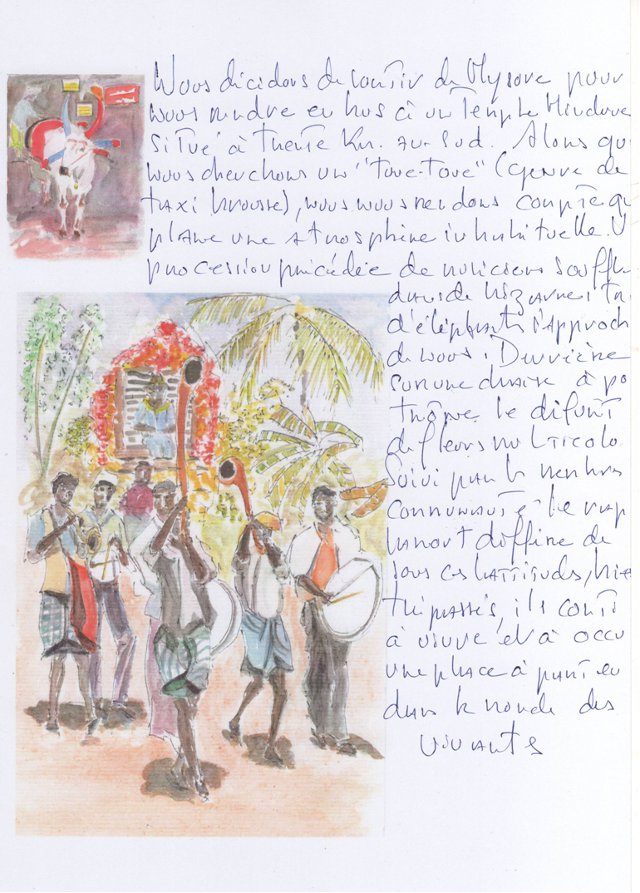 Nous décidons de partir de Mysore pour
nous rendre en bus à un Temple Hindoue
situé à trente Km. au Sud. Alors qu
nous cherchons un "touc-touc" (genre de
taxi brousse), nous nous rendons compte qu
plane une atmosphère inhabituelle. U
procession précédée de musiciens souffl
dans de bizarres
d'éléphants s'approch
de nous. Derrière
sur une chaise à po
trône le défunt
de fleurs multicolo
Suivi par les membres
communauté. Le rap
la mort diffère de
sous ces lattitudes, bie
trépassés, ils conti
à vivre et à occu
une place à part en
dans le monde des
vivants